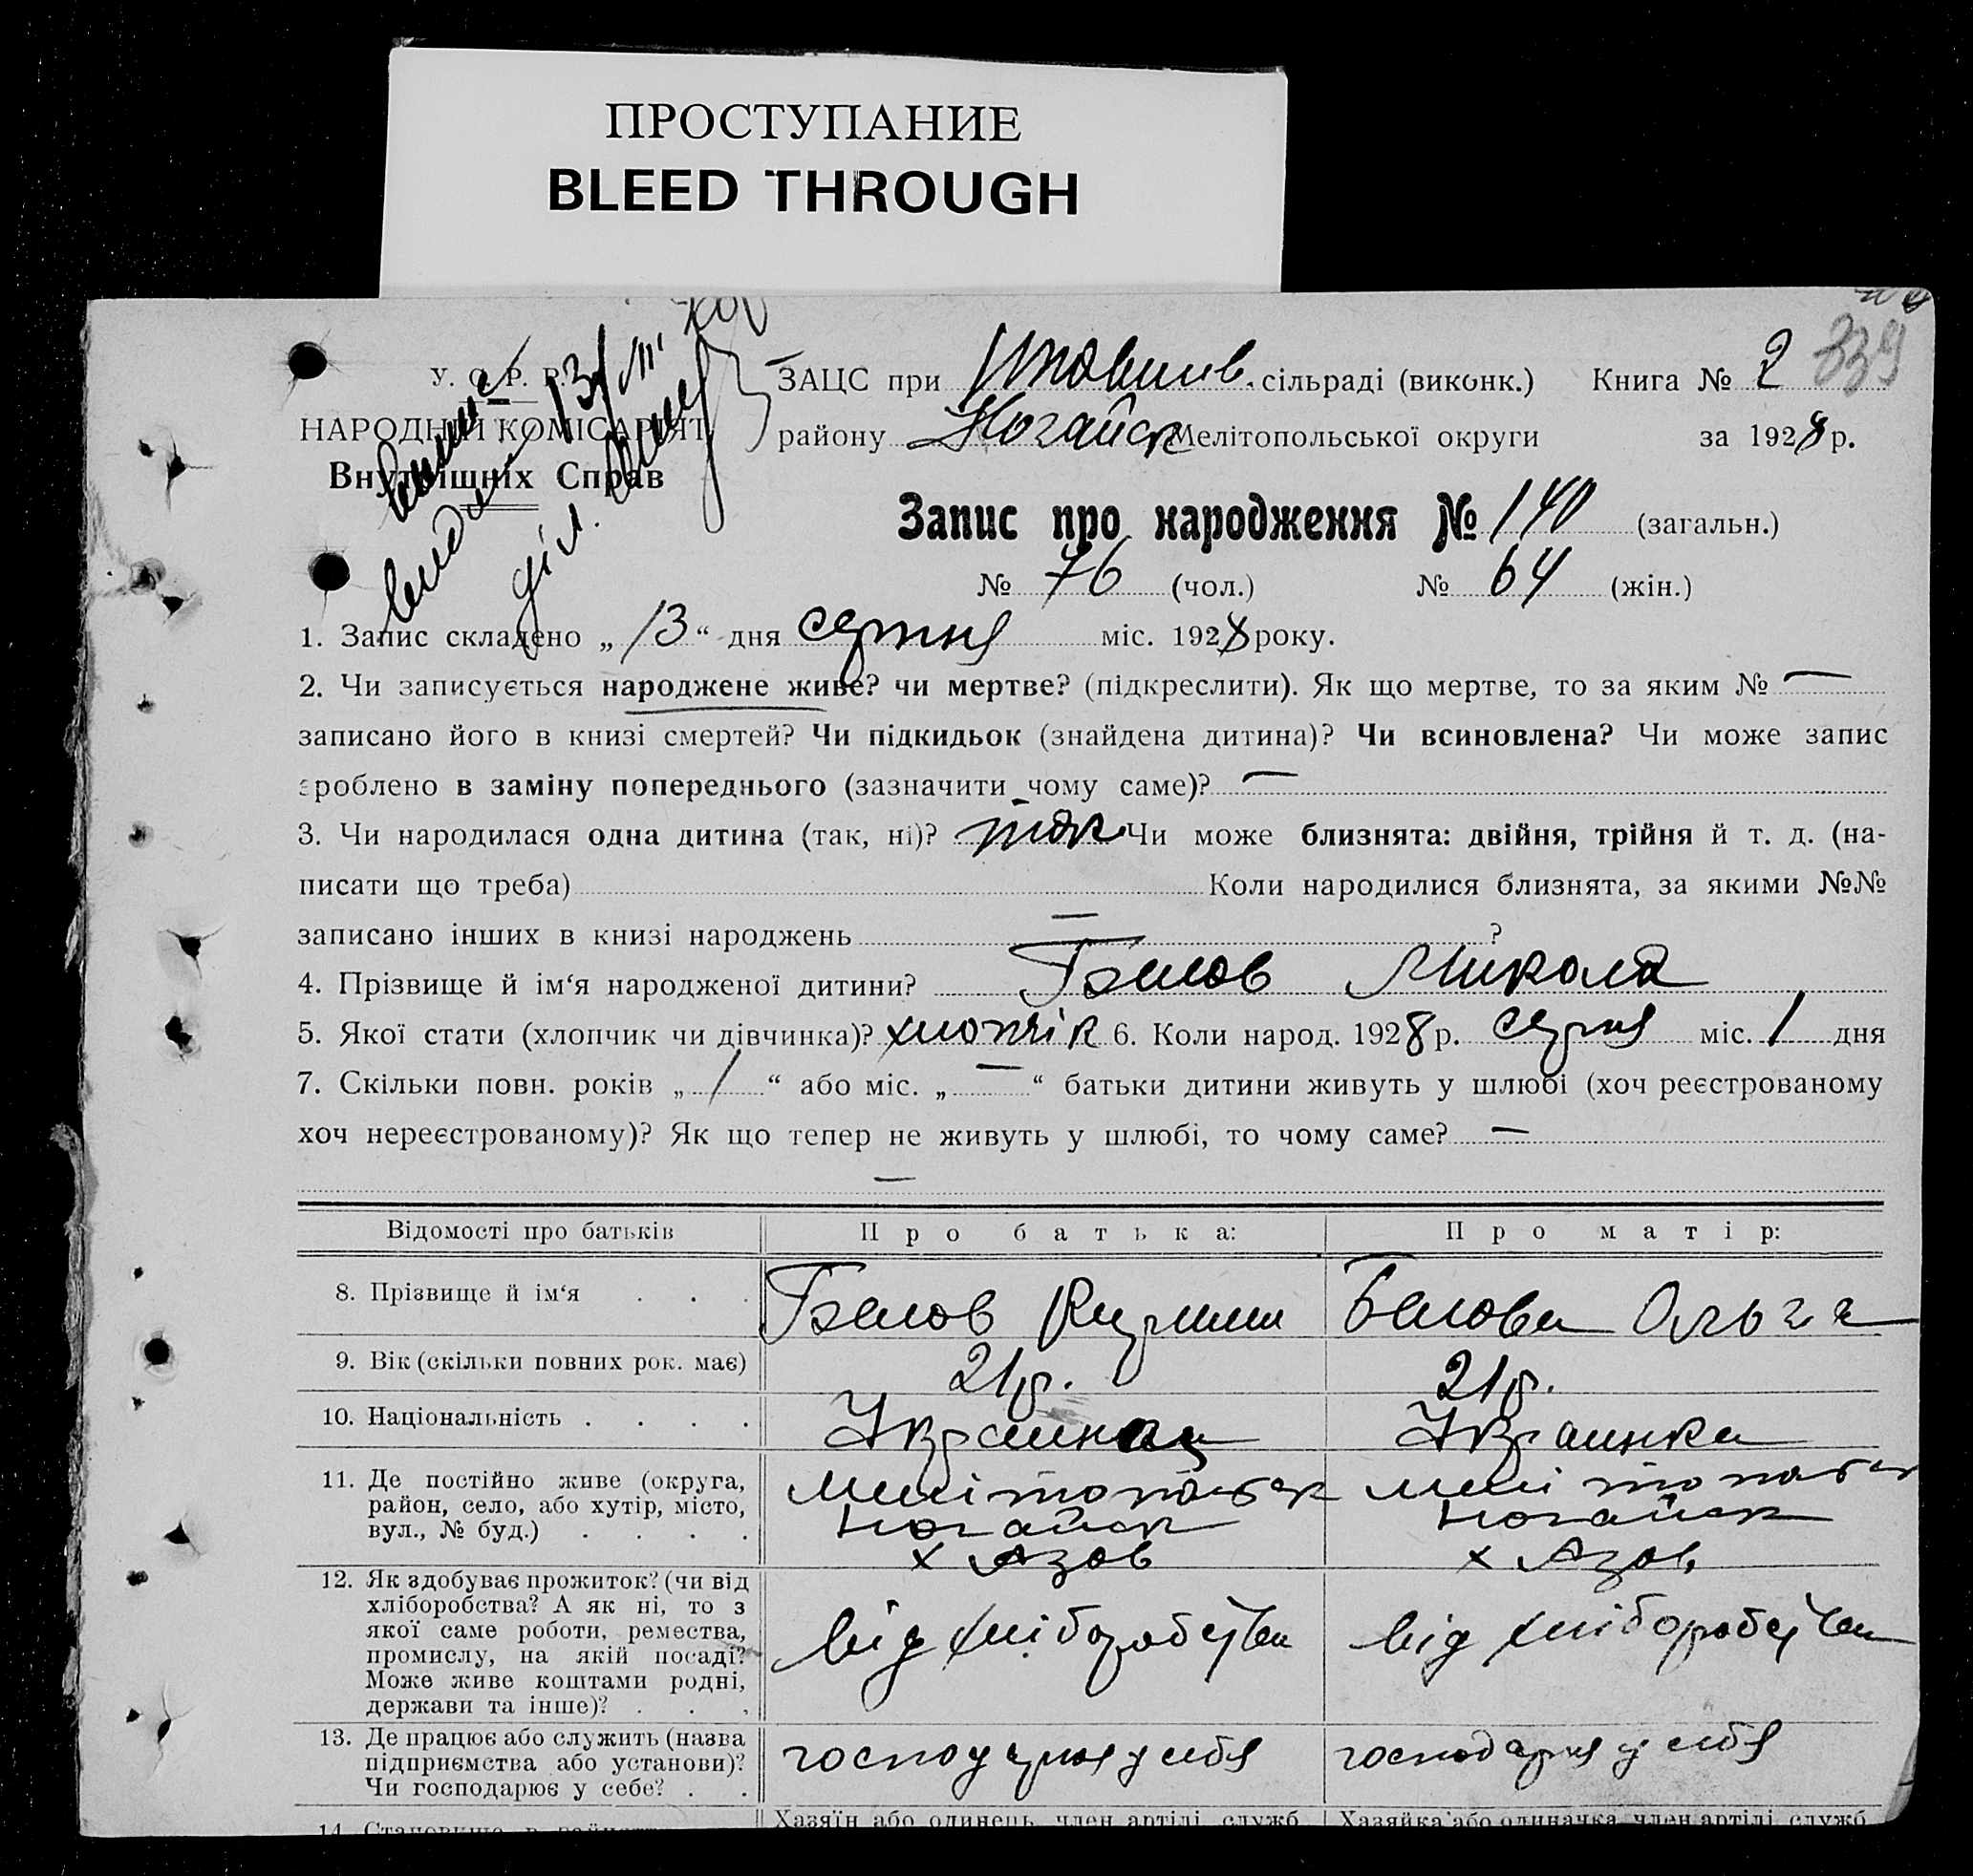 ПРОСТУПАНИЕ
BLEED THROUGH
339
У. С. Р. Р.
НАРОДНИЙ КОМІСАРІЯТ
Внутрішніх Справ
ЗАЦС при сільраді (виконк.) Книга № 2
району Ногайск Мелітопольської округи за 1928 р.
Запис про народження № 140 (загальн.)
№ 76 (чол.) № 64 (жін.)
1. Запис складено „ 13 “ дня серпня міс. 1928 року.
2. Чи записується народжене живе? чи мертве? (підкреслити). Як що мертве, то за яким № —
записано його в книзі смертей? Чи підкидьок (знайдена дитина)? Чи всиновлена? Чи може запис
зроблено в заміну попереднього (зазначити чому саме)? —
3. Чи народилася одна дитина (так, ні)? так Чи може близнята: двійня, трійня й т. д. (на-
писати що треба) Коли народилися близнята, за якими №№
записано інших в книзі народжень — ?
4. Прізвище й ім‘я народженої дитини? Бєлов Микола
5. Якої стати (хлопчик чи дівчинка)? хлопчік 6. Коли народ. 1928 р. серпня міс. 1 дня
7. Скільки повн. років „ 1 “ або міс. „ — “ батьки дитини живуть у шлюбі (хоч реєстрованому
хоч нереєстрованому)? Як що тепер не живуть у шлюбі, то чому саме? —
—
Відомості про батьків Про батька: Про матір:
8. Прізвище й ім‘я . . . Бєлов Бєлова Ольга
9. Вік (скільки повних рок. має) 21 р. 21 р.
10. Національність . . . . Українець Українка
11. Де постійно живе (округа,
район, село, або хутір, місто,
вул., № буд.) . . . .
Мелітопольск Мелітопольск
Ногайск Ногайск
х Азов х Азов
12. Як здобуває прожиток? (чи від
хліборобства? А як ні, то з
якої саме роботи, ремества,
промислу, на якій посаді?
Може живе коштами родні,
держави та інше)? . . .
від хліборобства від хліборобства
13. Де працює або служить (назва
підприємства або установи)?
Чи господарює у себе? . .
господарює у себя господарює у себя
Хазяїн або одинець, член артілі, служб. Хазяйка або одиначка, член артілі, служб.